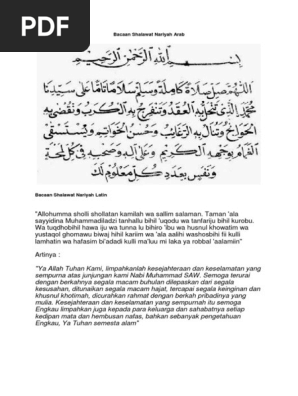 PDF
Bacaan Shalawat Nariyah Arab
بِسْمِ اللهِ الرَّحْمٰنِ الرَّحِيْمِ
اَللّٰهُمَّ صَلِّ صَلَاةً كَامِلَةً وَسَلِّمْ سَلَامًا تَامًّا عَلٰى سَيِّدِنَا
مُحَمَّدٍ الَّذِيْ تَنْحَلُّ بِهِ الْعُقَدُ وَتَنْفَرِجُ بِهِ الْكُرَبُ وَتُقْضٰى بِهِ
الْحَوَائِجُ وَتُنَالُ بِهِ الرَّغَائِبُ وَحُسْنُ الْخَوَاتِيْمِ وَيُسْتَسْقَى
الْغَمَامُ بِوَجْهِهِ الْكَرِيْمِ وَعَلٰى اٰلِهِ وَصَحْبِهِ فِيْ كُلِّ لَمْحَةٍ
وَنَفَسٍ بِعَدَدِ كُلِّ مَعْلُوْمٍ لَكَ
Bacaan Shalawat Nariyah Latin
"Allohumma sholli shollatan kamilah wa sallim salaman. Taman 'ala
sayyidina Muhammadiladzi tanhallu bihil 'uqodu wa tanfariju bihil kurobu.
Wa tuqdhobihil hawa iju wa tunna lu bihiro 'ibu wa husnul khowatim wa
yustaqol ghomawu biwaj hihil kariim wa 'ala aalihi washosbihi fii kulli
lamhatin wa hafasim bi'adadi kulli ma'luu mi laka ya robbal 'aalamiin"
Artinya :
"Ya Allah Tuhan Kami, limpahkanlah kesejahteraan dan keselamatan yang
sempurna atas junjungan kami Nabi Muhammad SAW. Semoga terurai
dengan berkahnya segala macam buhulan dilepaskan dari segala
kesusahan, ditunaikan segala macam hajat, tercapai segala keinginan dan
khusnul khotimah, dicurahkan rahmat dengan berkah pribadinya yang
mulia. Kesejahteraan dan keselamatan yang sempurnah itu semoga
Engkau limpahkan juga kepada para keluarga dan sahabatnya setiap
kedipan mata dan hembusan nafas, bahkan sebanyak pengetahuan
Engkau, Ya Tuhan semesta alam"